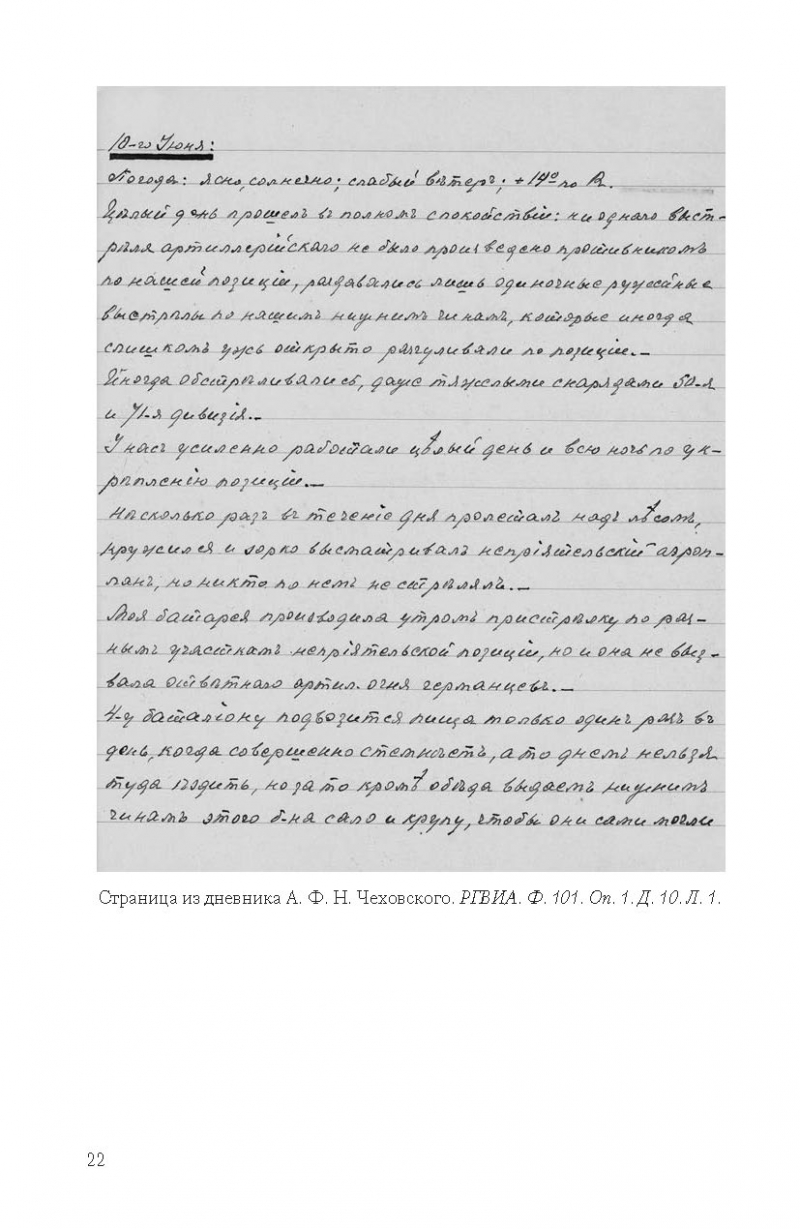 10-го Іюня:
Погода: ясно, солнечно; слабый вѣтеръ; +14° по R.
Цѣлый день прошелъ въ полномъ спокойствіи: ни одного выст-
рѣла артиллерійскаго не было произведено противникомъ
по нашей позиціи, раздавались лишь одиночные ружейные
выстрѣлы по нашимъ нижнимъ чинамъ, которые иногда
слишкомъ ужъ открыто разгуливали по позиціи.—
Иногда обстрѣливались, даже тяжелыми снарядами 50-я
и 71-я дивизія.—
У насъ усиленно работали цѣлый день и всю ночь по ук-
рѣпленію позиціи.—
Нѣсколько разъ въ теченіе дня пролеталъ надъ лѣсомъ,
кружился и зорко высматривалъ непріятельскій аэроп-
ланъ, но никто по немъ не стрѣлялъ.—
Моя батарея производила утромъ пристрѣлку по раз-
нымъ участкамъ непріятельской позиціи, но и она не выз-
вала отвѣтнаго артил. огня германцевъ.—
4-у баталіону подвозится пища только одинъ разъ въ
день, когда совершенно стемнѣетъ, а то днемъ нельзя
туда ѣздить, но за то кромѣ обѣда выдаемъ нижнимъ
чинамъ этого б-на сало и крупу, чтобы они сами могли
Страница из дневника А. Ф. Н. Чеховского. РГВИА. Ф. 101. Оп. 1. Д. 10. Л. 1.
22